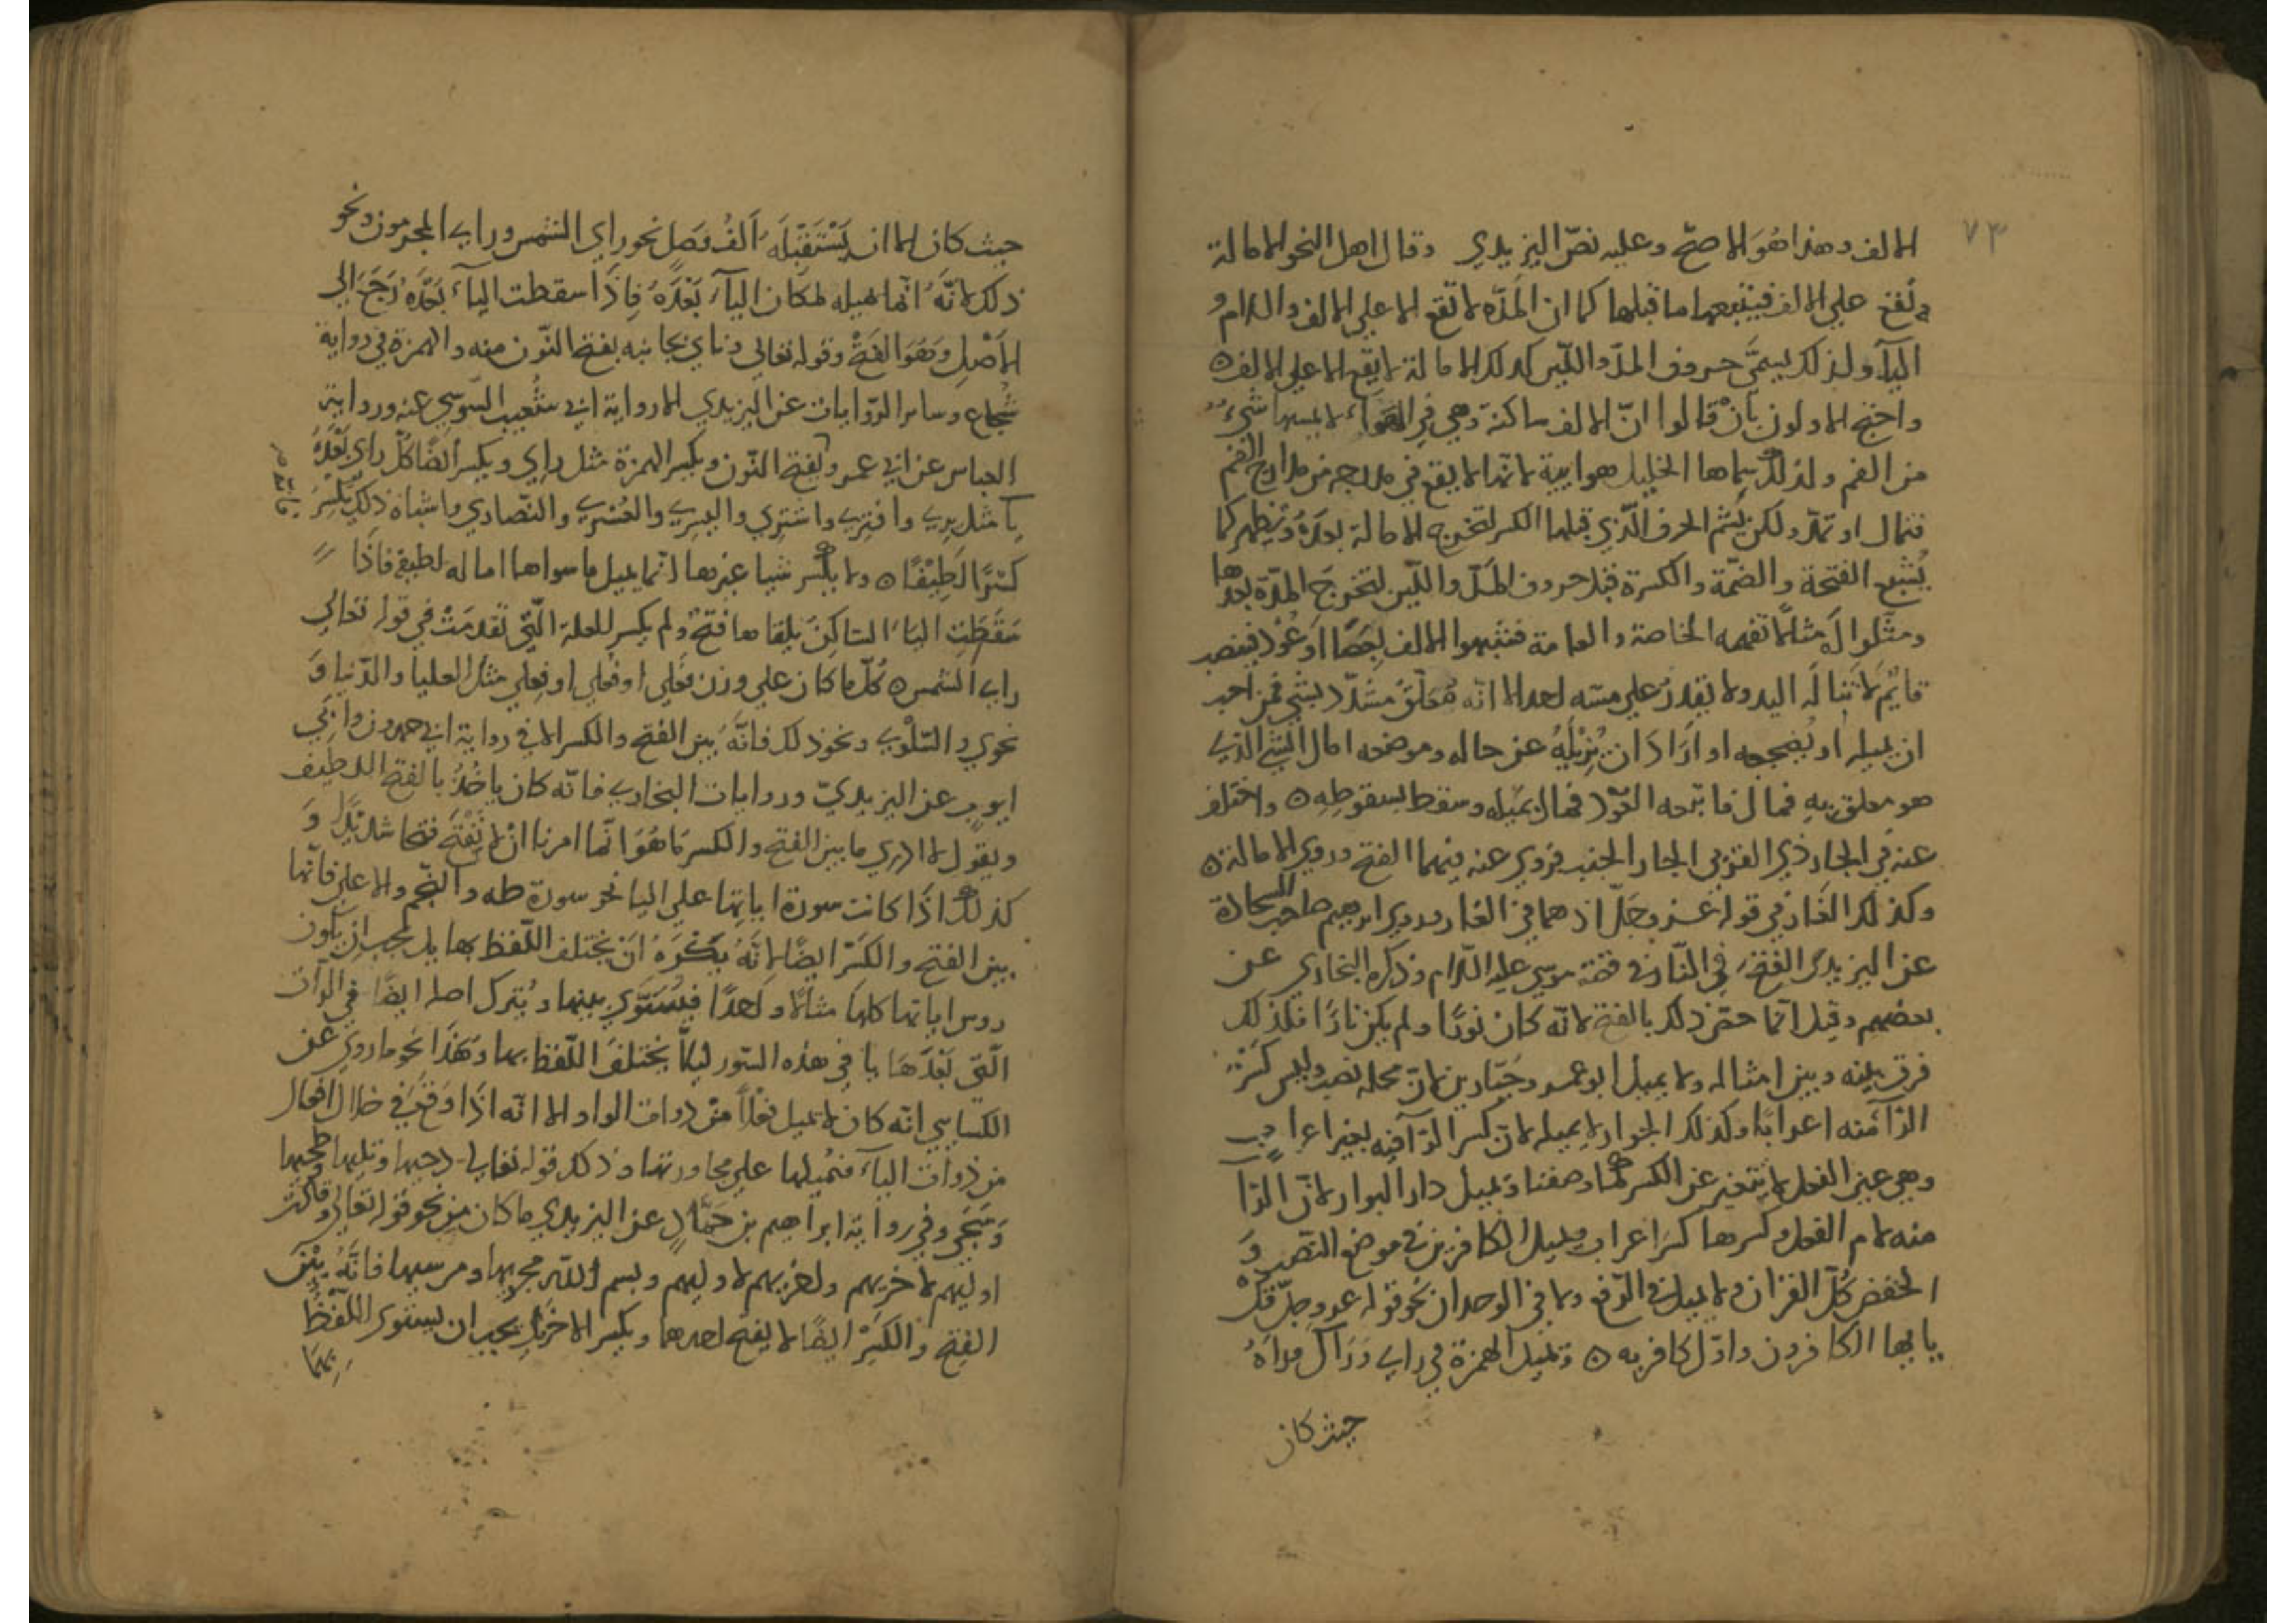 ٧٣
الالف وهذا هُوَ الاصحّ وعليه نصّ اليزيدي وقال اهل النحو الامالة
تقع علي الالف فيتبعها ما قبلها كما ان المدّه لا تقع الا علي الالف والواو و
اليآء ولذلك يسمَّي حروف المدّ واللّين كذلك الامالة لا يقع الا علي الالف ه
واحتج الاولون بأنْ قالوا انّ الالف ساكنة وهي في الهَوآء لا يمسها شيءٌ
من الفم ولذلك سماها الخليل هوايية لانها لا يقع في مدرجه من مدارج الفم
فتمال او تمدّ ولكن يُشم الحرف الّذي قبلها الكسر لتخرج الامالة بعدهُ وتظهر كما
يُشبع الفتحة والضمّة والكسرة قبل حروف المَدّ واللّين لتخرجَ المدّة بعدها
ومثلوا لَه مثالًا تفهمه الخاصة والعامة فشبهوا الالف بِعَصًا اَو عُوْد منتصب
قايمٌ لا تنالَه اليد ولا يقدرُ علي مسّه احد الا انّه مُعَلّقٌ مشدّد بشي فمن احب
ان يميله او يُضجعه او اَرَادَ ان يُزيلهُ عن حاله وموضعه امال الشي الّذي
هو معلق بهِ فمال العُوْد فمال بميله وسقط بسقوطِهِ ه واختلف
عنه في الجار ذي القربي والجار الجنب فروي عنه فيهما الفتح وروي الامالة ه
وكذلك الغَار في قوله عَزوجَلّ اذ هما في الغار وروي ابرهيم صاحب السجادة
عن اليزيدي الفتحَ فِي النّار في قصّة موسي عليه السّلام وذكره البخاري عن
بعضهم وقيل انّما خصّ ذلك بالفتح لانّه كان نورًا ولم يكن نارًا فلذلك
فرق بينه وبين امثاله ولا يميل ابو عمرو جَبّارين لانّ محله نصب وليس كَسْرُ
الرّآ منه اعرابًا وكذلك الجوار لا يميله لانّ كسر الرّآ فيه بغير اعراب
وهي عين الفعل لا يتغير عن الكسر لما وصفنا ويميل دار البوار لانّ الرّا
منه لام الفعل وكسرها كسرُ اعراب ويميل الكافرين في موضع النّصب وَ
الخفض كُلّ القران ولا يميل في الرّفع ولا في الوحدان نحو قوله عزوجلّ قل
يايها الكافرون واوّل كافر به ه ويميل الهمزة في راي وَرَاك وراَهُ
حيث كان
حيث كان الا ان يَسْتَقبِلَه اَلفُ وَصل نحو راي الشمس وراي المجرمون ونحو
ذلك لانّهُ انّما يميله لمكان اليآء بَعْدَهُ فاِذَا سقطت اليآء بَعْدَهُ رَجَعَ اِلي
الاَصْلِ وَهُوَ الفتحُ وقوله تعالي وناي بجانبه بفتح النّون منه والهمزة في رواية
شُجاع وساير الرّوايات عن اليزيدي الا رواية ابي شُعيب السّوسي عنه ورواية
العباس عن ابي عمرو بفتح النّون وبكسر الهمزة مثل راي وبكسر ايضًا كلّ راي بَعْدَهُ
يآ مثل يري وافتري واشتري واليسري والعُسْري والنّصاري واشباه ذلك يكسِرُ
كَسْرًا لَطِيْفًا ه ولا يكسر شيا غيرها انّما يميل ما سواها امالة لطيفة فاذَا
سَقَطَتِ اليآءُ السّاكِنُ يلقاها فتحَ ولم يكسر للعلة الّتي تقدمَتْ في قوله تعالي
راي الشمس ه كُلّ ما كان علي وزن فَعلي او فُعلي او فِعلي مثل العليا والدّنيا وَ
نجوي والسّلوي ونحو ذلك فانَّهُ بين الفتح والكسر الا في رواية ابي حمدون وابي
ايوب عن اليزيديّ وروايات البخاري فانّه كان ياخُذُ بالفتح اللطيف
ويقول لا ادري ما بين الفتح والكسر مَا هُوَ انّما امرنا انْ لا نَفْتَحَ فتحا شديدًا وَ
كذلك اذَا كانت سورة اياتها علي اليا نحو سورة طه والنّجم والاعلي فانّها
بين الفتح والكَسْر ايضًا لانّهُ يَكْرَهُ اَنْ يختلف اللّفظ بها بل يحب ان يكون
روس اياتها كلها مثالًا واحدًا فيُسَوّي بينها ويُترك اصله ايضًا في الرّآت
الّتي بَعْدَهَا يا في هذه السّور لئلاَّ يختلفَ اللّفظ بها وَهَذَا نحو ما روي عن
الكسايي انّه كان لا يميل فعلاً منْ ذوات الواو الا انّه اذَا وَقَعَ في خلال افعال
من ذوات اليآء فتميلها علي مجاورتها وذلك قوله تعالي دحيها وتليها وطحيها
وَسَجي وفي رواية ابراهيم بن حَمّادٍ عن اليزيدي ما كان من نحو قوله تعالي وقالت
اوليهم لاخريهم واخريهم لاوليهم وبسم اللّه مجريها ومرسيها فانّهُ بَيْنَ
الفتح والكَسْرِ ايضًا لا يفتح احدهما ويكسر الاخرَ بل يحب ان يستوي اللّفظُ
بهمَا